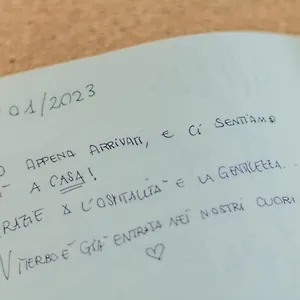 01/2023
APPENA ARRIVATI, E CI SENTIAMO
A CASA!
GRAZIE X L'OSPITALITÀ E LA GENTILEZZA..
VITERBO È GIÀ ENTRATA NEI NOSTRI CUORI
♡